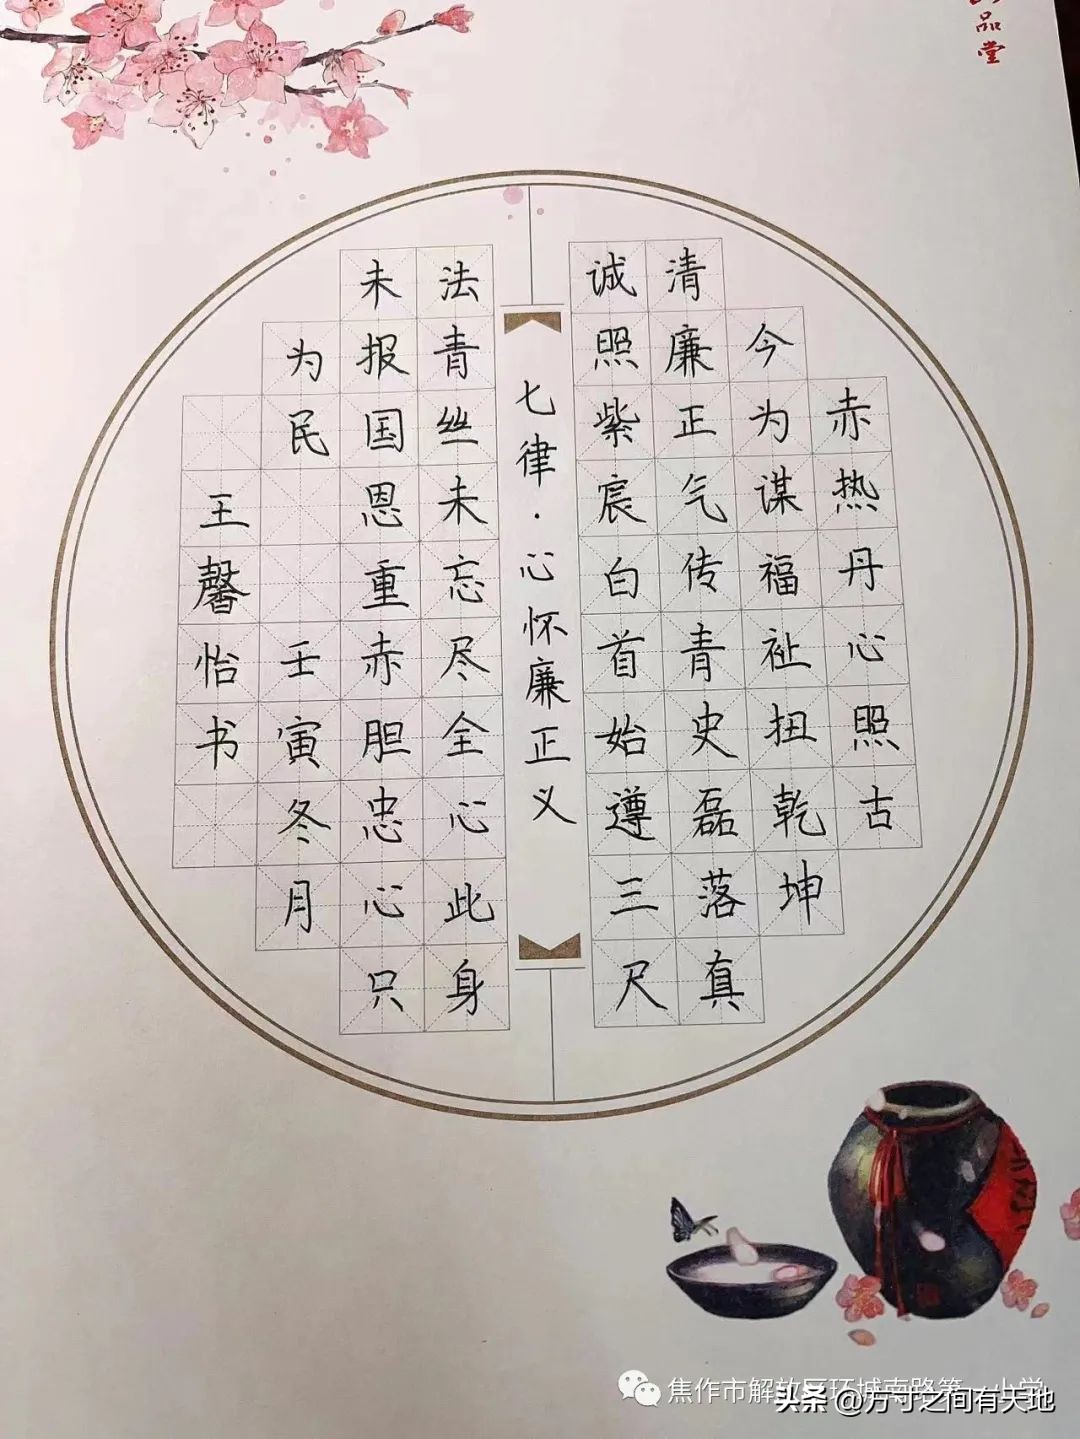 品堂
赤热丹心照古
今为谋福祉扭乾坤
清廉正气传青史磊落真
诚照紫宸白首始遵三尺
七律·心怀廉正义
法青丝未忘尽全心此身
未报国恩重赤胆忠心只
为民 壬寅冬月
王馨怡书
焦作市解放区环城南路第一小学
头条 @方寸之间有天地